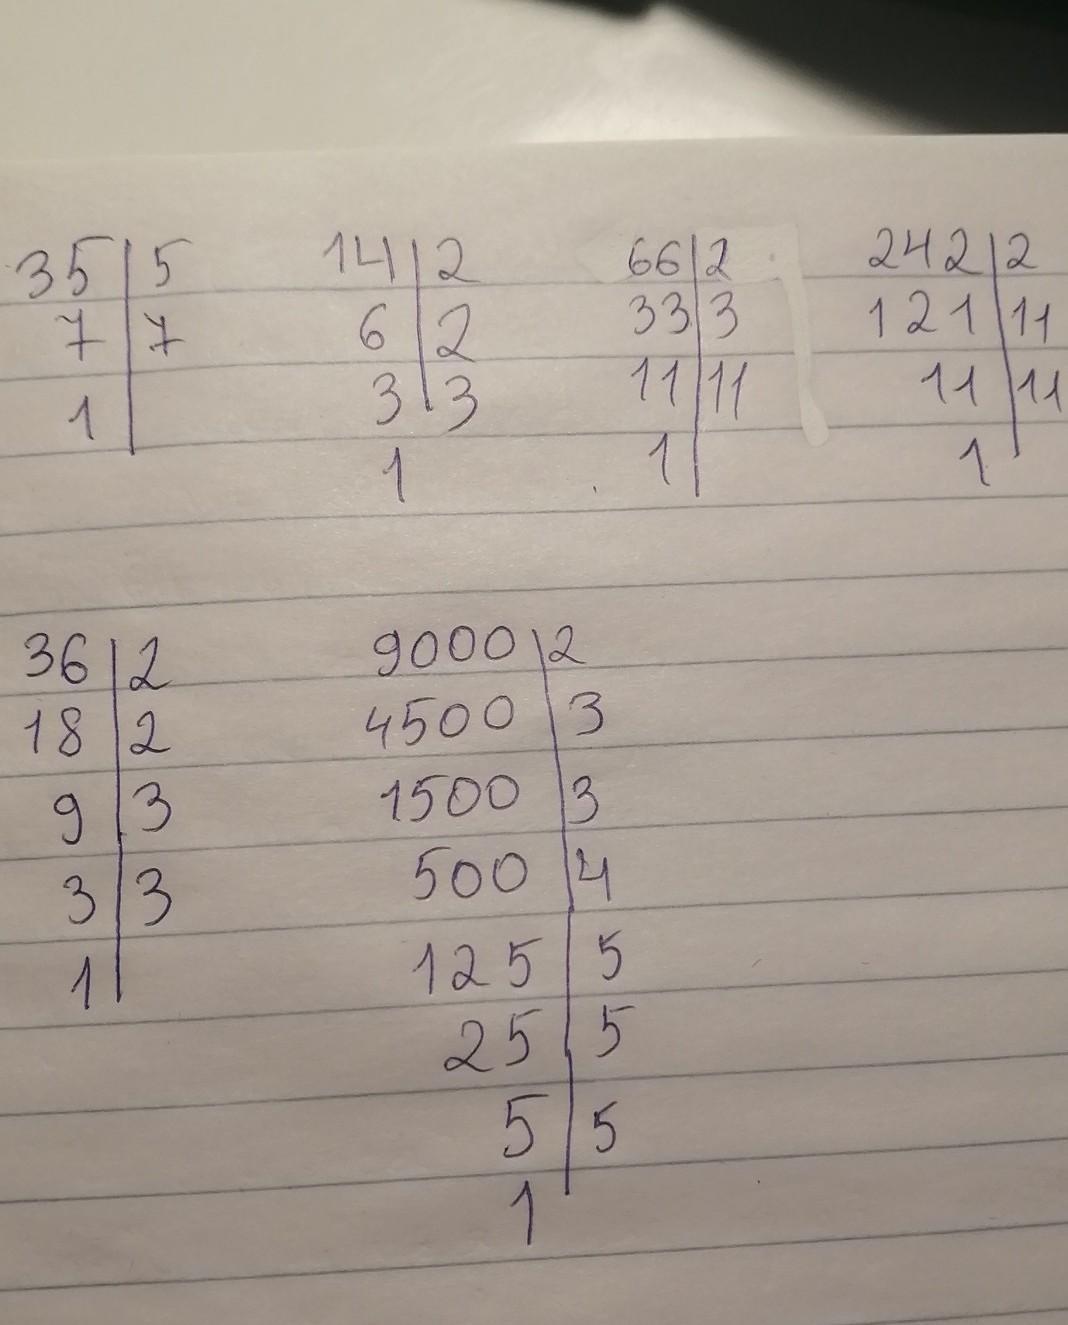 35 | 5
7 | 7
1 |
14 | 2
6 | 2
3 | 3
1
66 | 2
33 | 3
11 | 11
1 |
242 | 2
121 | 11
11 | 11
1 |
36 | 2
18 | 2
9 | 3
3 | 3
1 |
9000 | 2
4500 | 3
1500 | 3
500 | 4
125 | 5
25 | 5
5 | 5
1